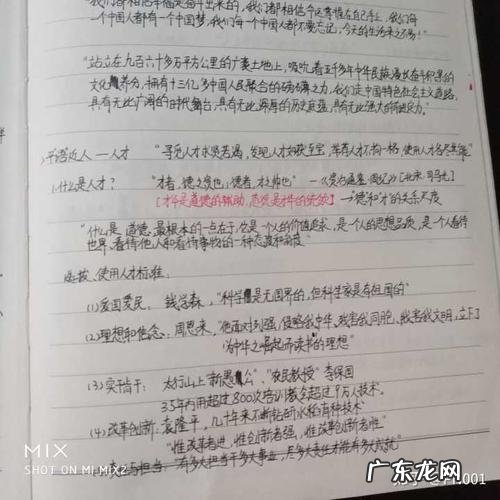 "我们都相信幸福是奋斗出来的,我们都相信命运掌握在自己手上,我们每
一个中国人都有一个中国梦,我们每一个中国人都不要忘记,今天的生活来之不易!"
"站立在九百六十多万平方公里的广袤土地上,吸吮着五千多年中华民族漫长奋斗积累的
文化养分,拥有十三亿多中国人民聚合的磅礴之力,我们走中国特色社会主义道路,
具有无比广阔的时代舞台,具有无比深厚的历史底蕴,具有无比强大的前进定力。"
平语近人——人才 "寻觅人才求贤若渴,发现人才如获至宝,举荐人才不拘一格,使用人才各尽其能"
1.什么是人才? "才者,德之资也;德者,才之帅也" —《资治通鉴·周纪》[北宋·司马光]
[才华是道德的辅助,
→"德和才"的关系尺度
"什么是道德,最根本的一点在于,它是一个人的价值追求,是一个人的思想品质,是一个人看待
世界、看待他人和看待事物的一种态度和角度"
选拔、使用人才标准:
(1)爱国爱民: 钱学森,"科学是无国界的,但科学家是有祖国的"
(2)理想和信念:周恩来,"他面对列强,侵略我中华,残害我同胞,我害我文明,立下
"为中华之崛起而读书"的理想"
(3)实干肯干: 太行山上"新愚公"、"农民教授"李保国
35年内用超过800次培训教会超过9万人技术。
(4)改革创新:袁隆平,几十年来不断钻研水稻育种技术
"惟改革者进,惟创新者强,惟改革创新者胜"
与担当: 有多大担当干多大事业,尽多大责任才能有多大成就"
MIX
SHOT ON MI MIX2
广东龙网
001